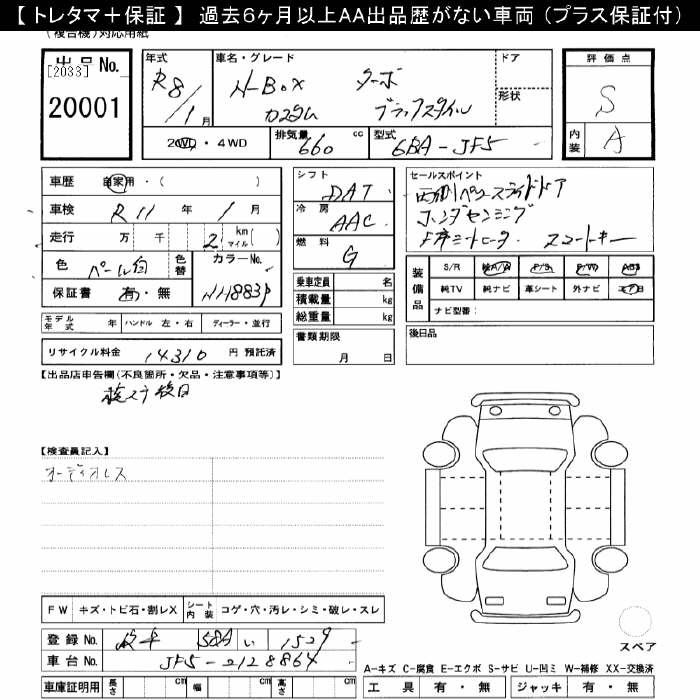 【トレタマ＋保証】 過去6ヶ月以上AA出品歴がない車両 (プラス保証付)
(複合機)対応用紙
出品No. [2033] 20001
年式 R8/1月
車名・グレード N-BOX ターボ
カスタム ブラックスタイル
ドア
形状
2WD・4WD 排気量 660 cc 型式 6BA-JF5
評価点 S
内装 A
車歴 自家用・( )
車検 R11年 1月
走行 万 千 2 km マイル( )
色 パール白 色替 カラーNo. NH883P
保証書 有・無
モデル年式 年 ハンドル 左・右 ディーラー・並行
リサイクル料金 14310 円 預託済
シフト DAT
冷房 AAC
燃料 G
乗車定員 名
積載量 kg
総重量 kg
書類期限 月 日
セールスポイント
両側パワースライドドア
ホンダセンシング
F席シートヒータ スマートキー
装備品 S/R 純A/W P/S P/W ABS
純TV 純ナビ 革シート 外ナビ エアB
ナビ型番:
後日品
【出品店申告欄(不良箇所・欠品・注意事項等)】
検ステ後日
【検査員記入】
オーディオレス
FW キズ・トビ石・割レX シート内装 コゲ・穴・汚レ・シミ・破レ・スレ
登録No. 岐阜 584 い 1529
車台No. JF5-2128864
車庫証明用 長さ cm 幅 cm 高さ cm
スペア
A-キズ C-腐食 E-エクボ S-サビ U-凹ミ W-補修 XX-交換済
工具 有・無 ジャッキ 有・無